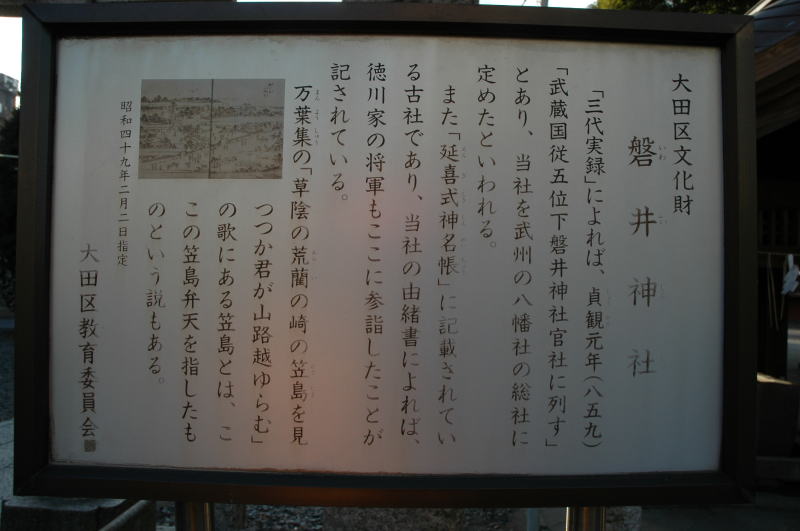 大田区文化財
磐井神社
「三代実録」によれば、貞観元年(八五九)
「武蔵国従五位下磐井神社官社に列す」
とあり、当社を武州の八幡社の総社に
定めたといわれる。
また「延喜式神名帳」に記載されてい
る古社であり、当社の由緒書によれば、
徳川家の将軍もここに参詣したことが
記されている。
万葉集の「草陰の荒藺の崎の笠島を見
つつか君が山路越ゆらむ」
の歌にある笠島とは、こ
この笠島弁天を指したも
のという説もある。
昭和四十九年二月二日指定
大田区教育委員会